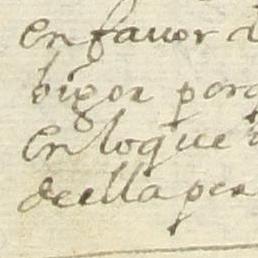 en favor d
bigor porq
en loque
deella per